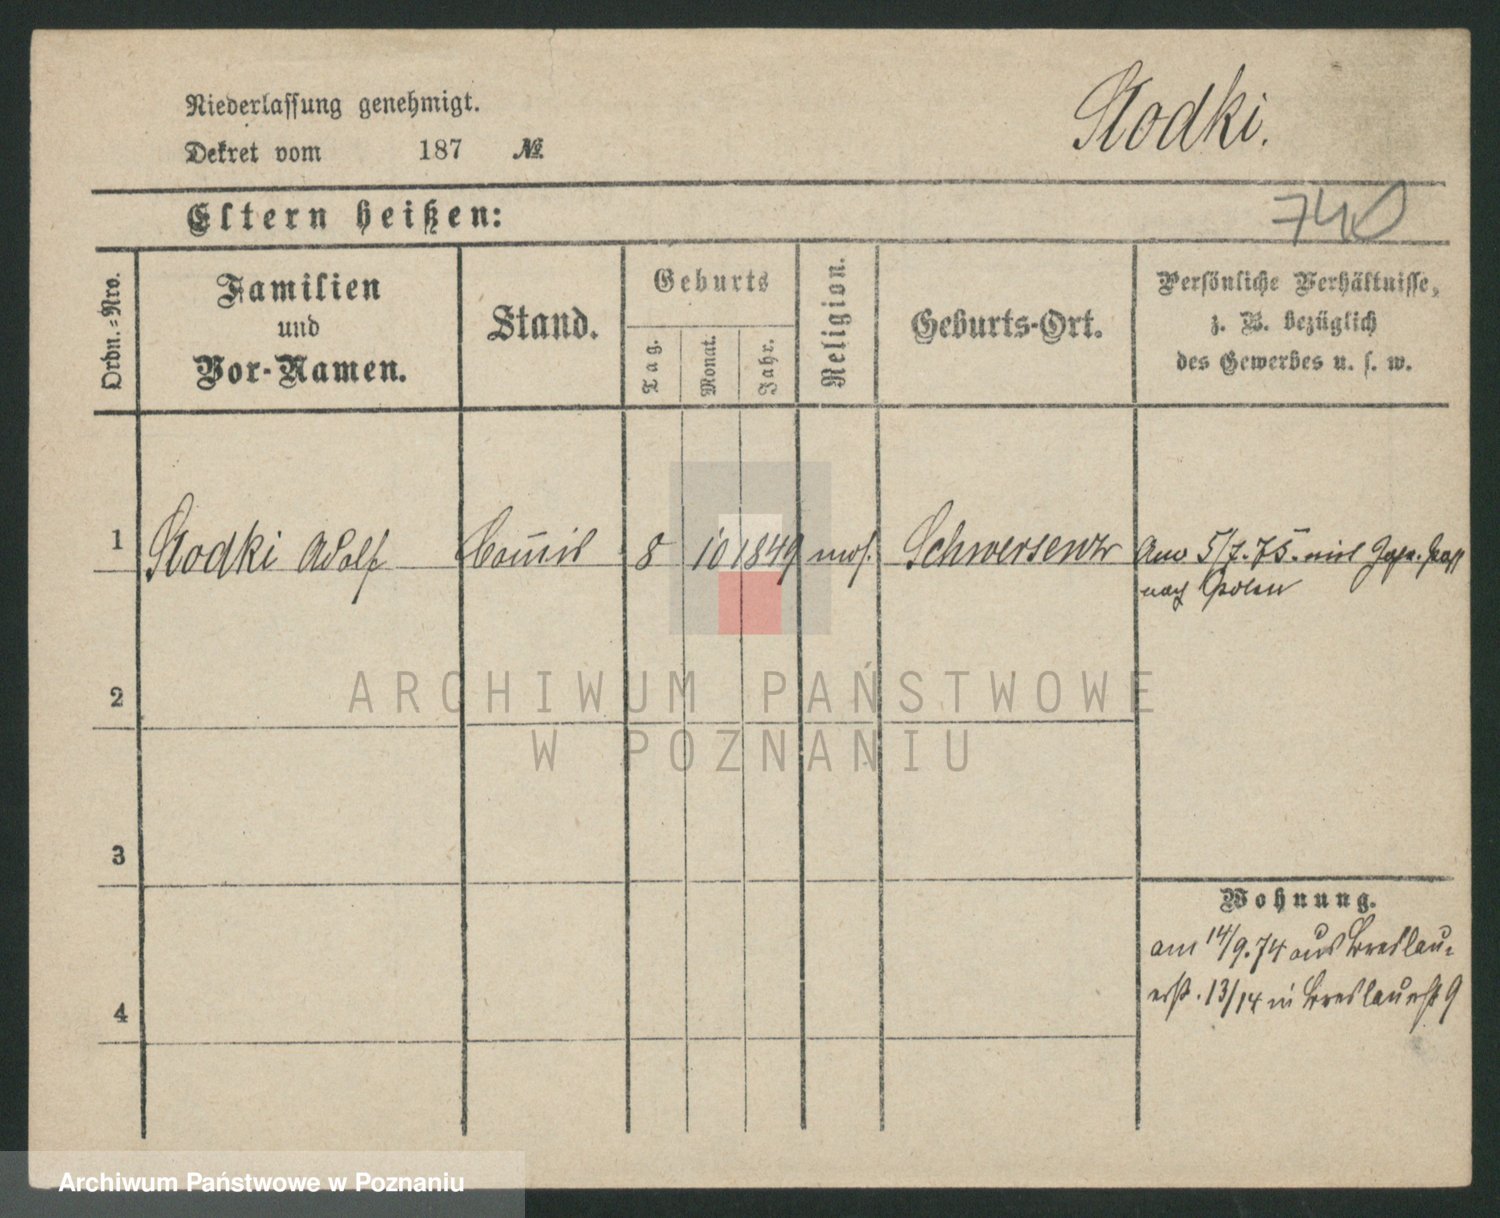 Niederlassung genehmigt.
Slodki.
Dekret vom 187 №
Eltern heißen:
740
Ordn.=Nro.
Familien
und
Vor-Namen.
Stand.
Geburts
Tag.
Monat.
Jahr.
Religion.
Geburts-Ort.
Persönliche Verhältnisse,
z. B. bezüglich
des Gewerbes u. s. w.
1 Slodki Adolf Com̅is 8 10 1849 mos. Schwersenz Am 5/7. 75. mit
nach Polen
2
ARCHIWUM PAŃSTWOWE
W POZNANIU
3
Wohnung.
am 14/9. 74 aus Breslau
13/14 in Breslauerst 9
4
Archiwum Państwowe w Poznaniu